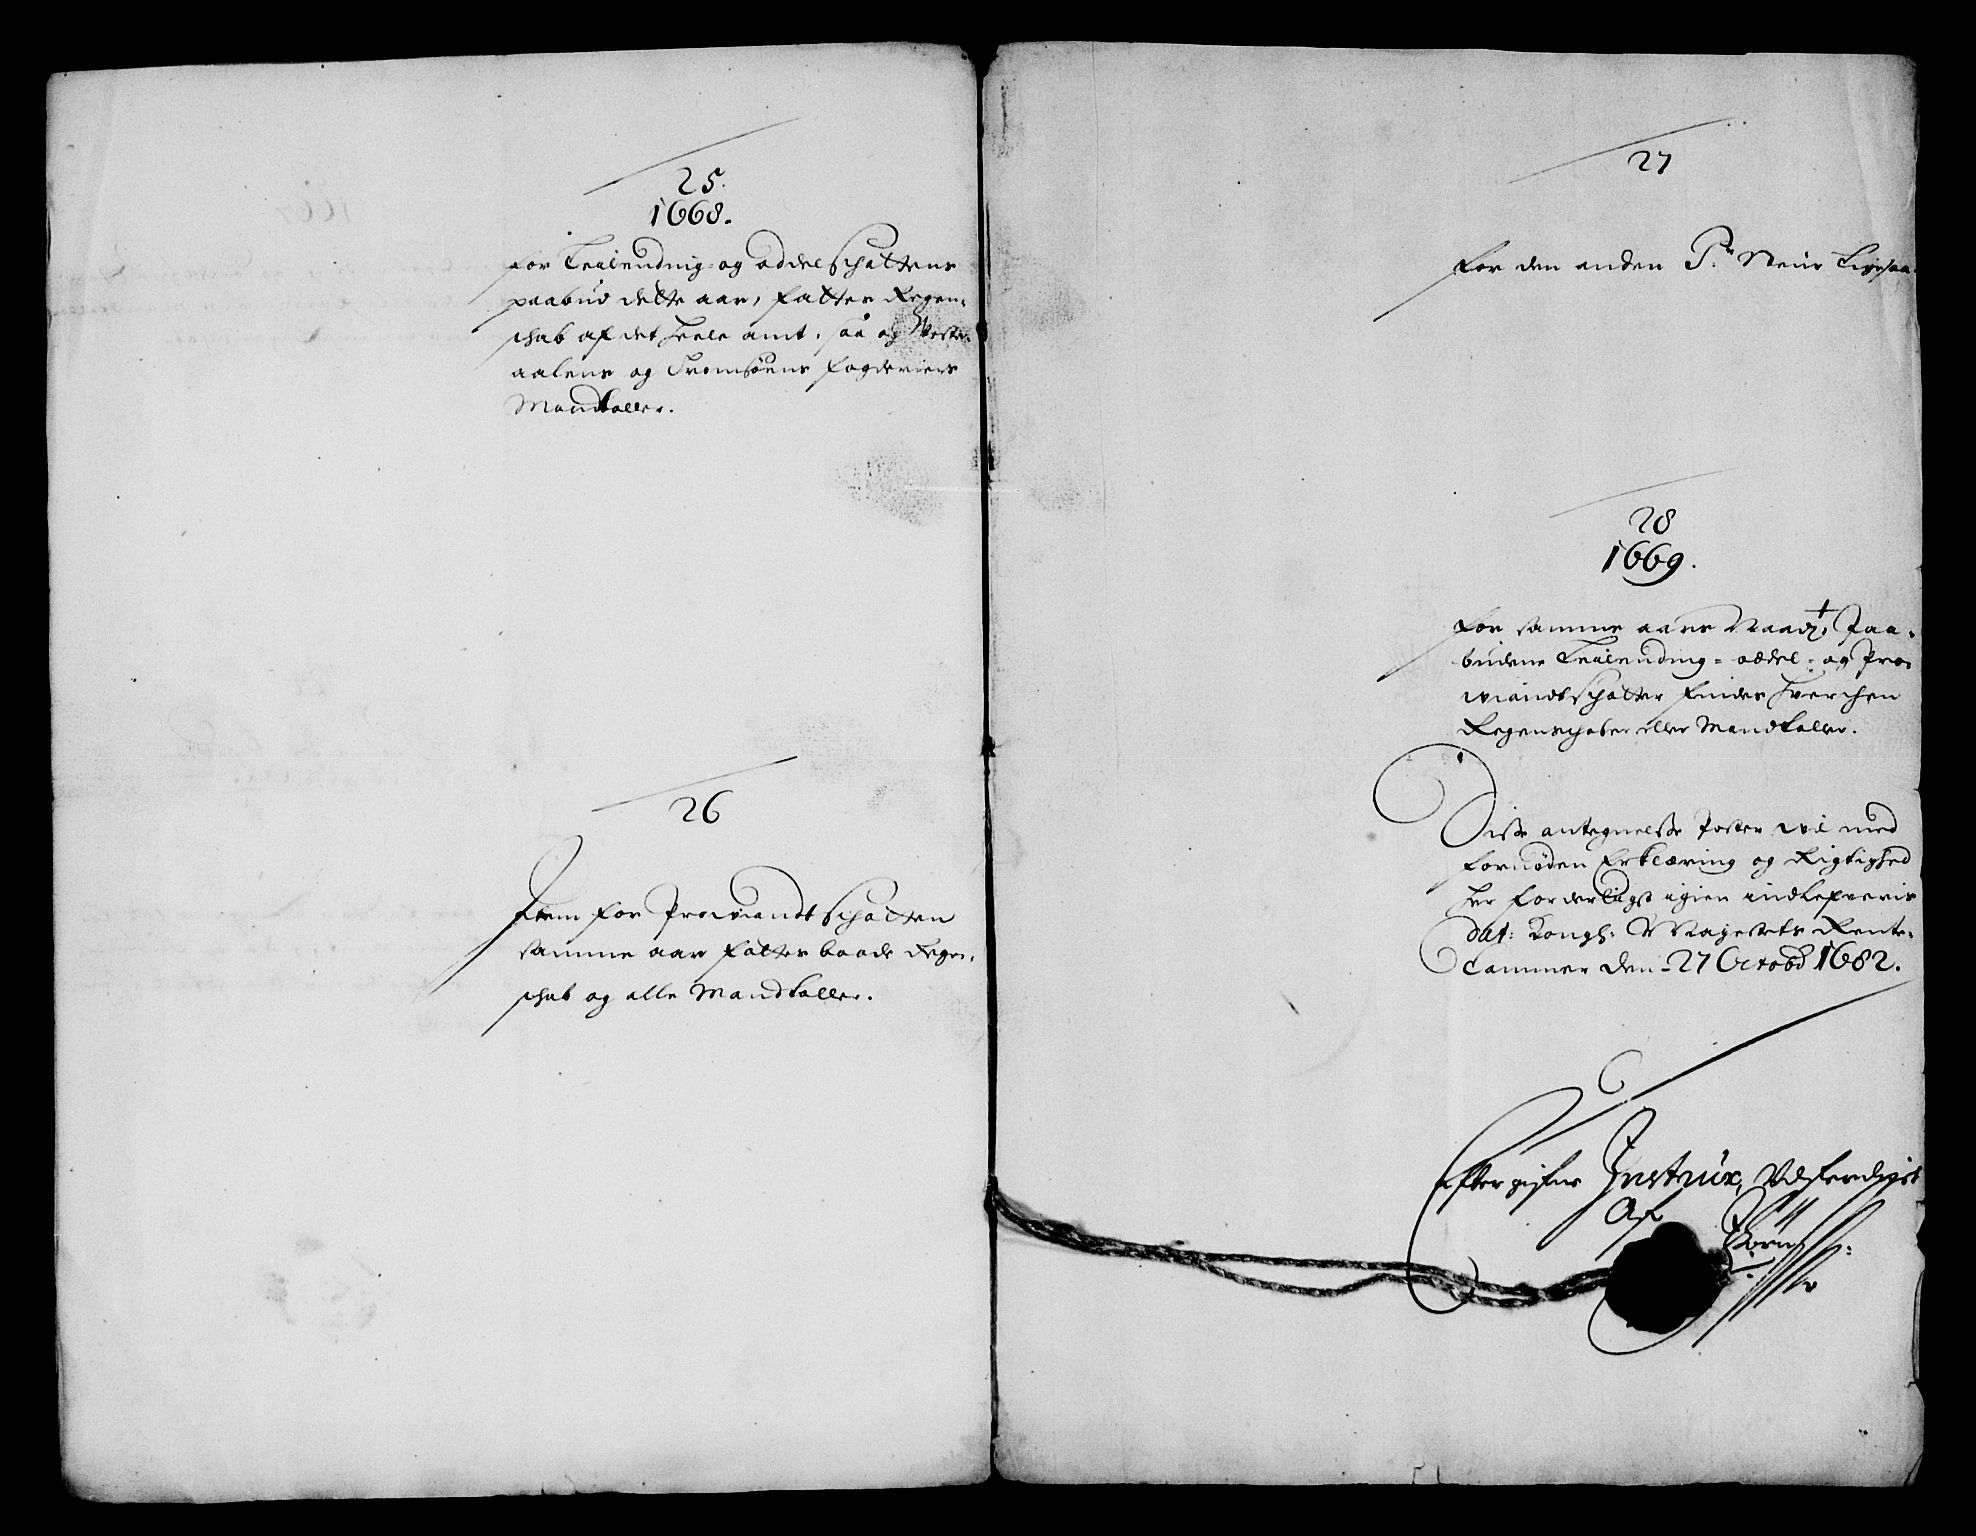 25.
1668.
for Leilending og oddel Schattens
paabud dette aar, fattes Regen-
schab af det heele amt. saa og Vester-
aalens og Tromsøens fogderiers
Mandtaller.
26
Item for Proviandt Schatten
samme aar fattes baade Regen-
schab og alle Mandtaller.
27
For den anden P. Ligesaa.
28
1669.
for samme aars Naad. Paa-
budene Leilending- oddel- og Pro-
viandt Schatter findes hverchen
Regenschaber eller Mandtaller.
Disse antegnelse Poster vil med
fornøden Erklæring og Rigtighed
her forderligst igien indlefveris
dat: Kongl: Majestets Rente-
Cammer den 27 Octobr 1682.
Efter gifne Instrux, Udferdiget
Af